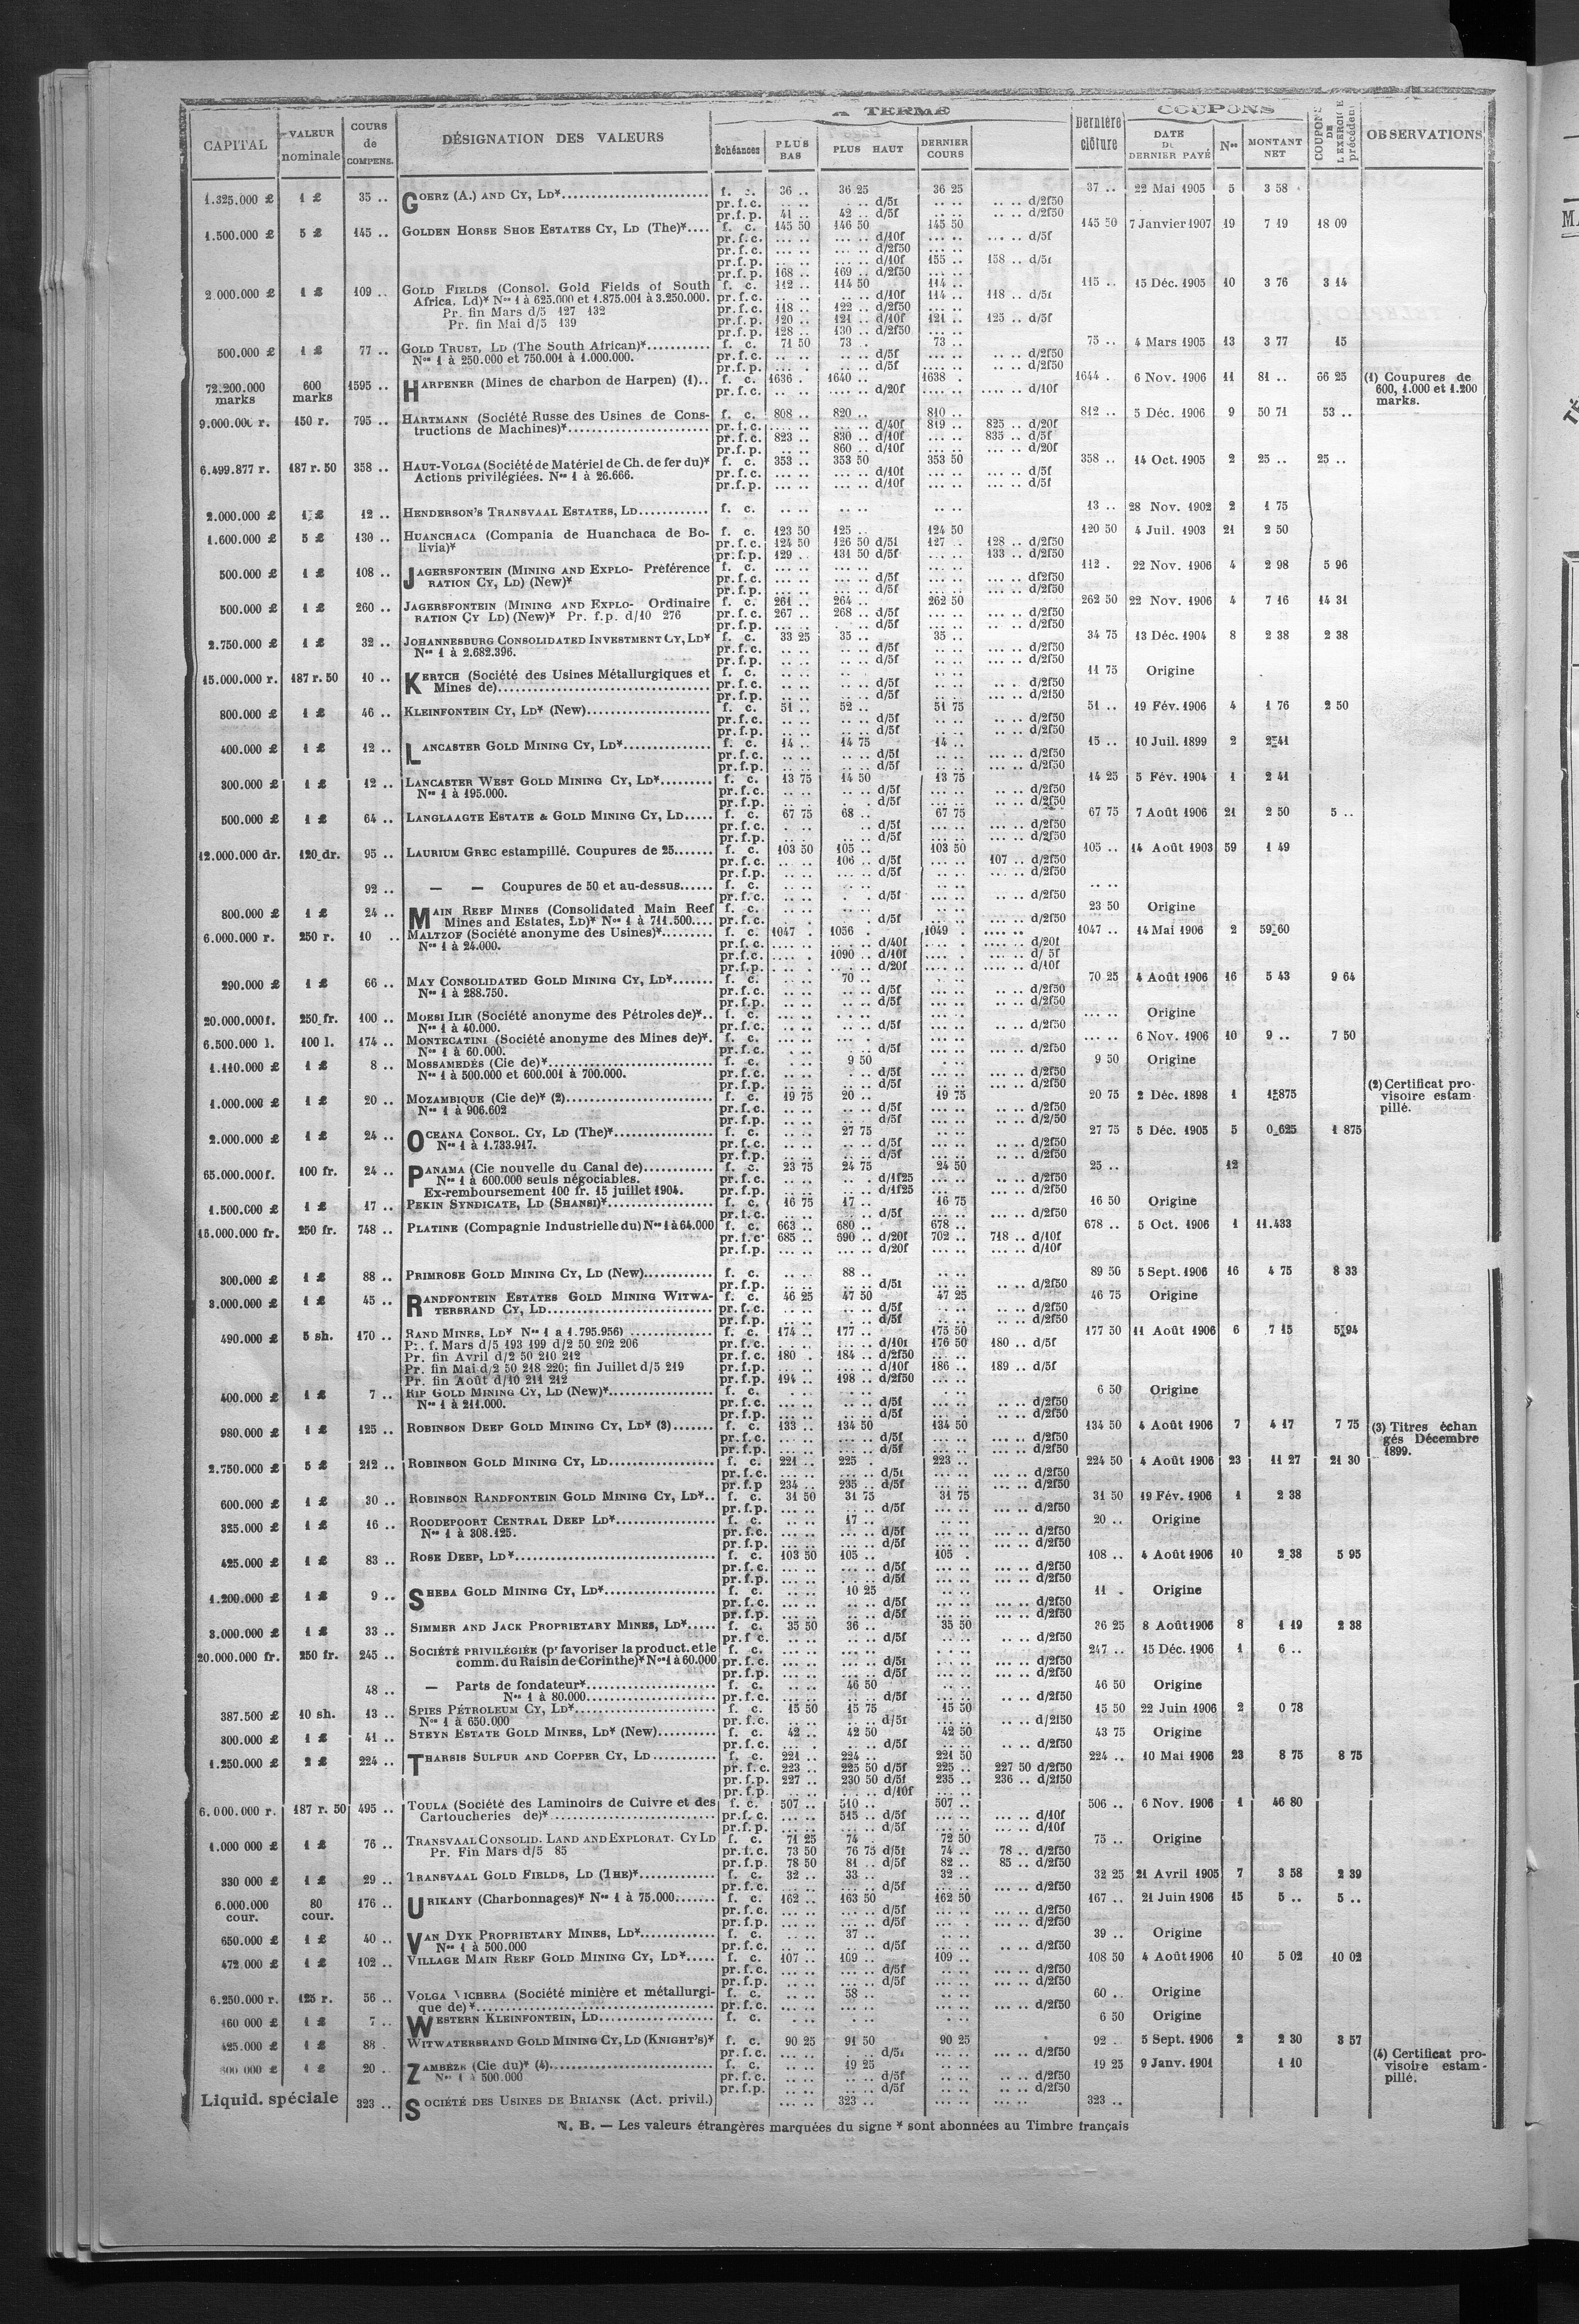 CAPITAL
VALEUR nominale
COURS de COMPENS.
DÉSIGNATION DES VALEURS
A TERME
Échéances
PLUS BAS
PLUS HAUT
DERNIER COURS
Dernière clôture
COUPONS
DATE DU DERNIER PAYÉ
Nos
MONTANT NET
COUPONS DE L'EXERCICE précédent
OBSERVATIONS
1.325.000 £ 1 £ 35 .. GOERZ (A.) AND CY, LD* f. c. 36 .. 36 25 36 25 37 .. 22 Mai 1905 5 3 58
pr.f.c. .. .. d/5f .. .. d/2f50
pr.f.p. 41 .. 42 .. d/5f .. .. d/2f50
1.500.000 £ 5 £ 145 .. GOLDEN HORSE SHOE ESTATES CY, LD (The)* f. c. 145 50 146 50 145 50 145 50 7 Janvier 1907 19 7 19 18 09
pr.f.c. ... .. d/10f ... .. d/5f
pr.f.c. ... .. d/2f50
pr.f.p. ... .. d/10f 155 .. 158 .. d/5f
pr.f.p. 168 .. 169 .. d/2f50
2.000.000 £ 1 £ 109 .. GOLD FIELDS (Consol. Gold Fields of South f. c. 112 .. 114 50 114 .. 115 .. 15 Déc. 1905 10 3 76 3 14
Africa, Ld)* Nos 1 à 625.000 et 1.875.001 à 3.250.000. pr.f.c. ... .. d/10f 114 .. 118 .. d/5f
Pr. fin Mars d/5 127 132 pr.f.c. 118 .. 122 .. d/2f50
Pr. fin Mai d/5 139 pr.f.p. 120 .. 121 .. d/10f 121 .. 125 .. d/5f
pr.f.p. 128 .. 130 .. d/2f50
500.000 £ 1 £ 77 .. GOLD TRUST, LD (The South African)* f. c. 71 50 73 . 73 .. 75 .. 4 Mars 1905 13 3 77 15
Nos 1 à 250.000 et 750.001 à 1.000.000. pr.f.c. d/5f d/2f50
pr.f.p. d/5f d/2f50
72.200.000 marks 600 marks 1595 .. HARPENER (Mines de charbon de Harpen) (1).. f. c. 1636 . 1640 .. 1638 . 1644 . 6 Nov. 1906 11 81 .. 66 25 (1) Coupures de 600, 1.000 et 1.200 marks.
pr.f.c. d/20f d/10f
9.000.000 r. 150 r. 795 .. HARTMANN (Société Russe des Usines de Cons- f. c. 808 .. 820 .. 810 .. 812 .. 5 Déc. 1906 9 50 71 53 ..
tructions de Machines)* pr.f.c. d/40f 819 .. 825 .. d/20f
pr.f.c. 823 .. 830 .. d/10f 835 .. d/5f
pr.f.p. 860 .. d/10f d/20f
6.499.877 r. 187 r. 50 358 .. HAUT-VOLGA (Société de Matériel de Ch. de fer du)* f. c. 353 .. 353 50 353 50 358 .. 14 Oct. 1905 2 25 .. 25 ..
Actions privilégiées. Nos 1 à 26.666. pr.f.c. d/10f d/5f
pr.f.p. d/10f d/5f
2.000.000 £ 1 £ 12 .. HENDERSON'S TRANSVAAL ESTATES, LD f. c. 13 .. 28 Nov. 1902 2 1 75
1.600.000 £ 5 £ 130 .. HUANCHACA (Compania de Huanchaca de Bo- f. c. 123 50 125 .. 124 50 120 50 4 Juil. 1903 21 2 50
livia)* pr.f.c. 124 50 126 50 d/5f 127 . 128 .. d/2f50
pr.f.p. 129 .. 131 50 d/5f 133 .. d/2f50
500.000 £ 1 £ 108 .. JAGERSFONTEIN (MINING AND EXPLO- Préférence f. c. 112 . 22 Nov. 1906 4 2 98 5 96
RATION CY, LD) (New)* pr.f.c. d/5f d/2f50
pr.f.p. d/5f d/2f50
500.000 £ 1 £ 260 .. JAGERSFONTEIN (MINING AND EXPLO- Ordinaire f. c. 261 .. 264 .. 262 50 262 50 22 Nov. 1906 4 7 16 14 31
RATION CY LD) (New)* Pr. f.p. d/10 276 pr.f.c. 267 .. 268 .. d/5f d/2f50
pr.f.p. d/5f d/2f50
2.750.000 £ 1 £ 32 .. JOHANNESBURG CONSOLIDATED INVESTMENT CY, LD* f. c. 33 25 35 .. 35 .. 34 75 13 Déc. 1904 8 2 38 2 38
Nos 1 à 2.682.396. pr.f.c. d/5f d/2f50
pr.f.p. d/5f d/2f50
15.000.000 r. 187 r. 50 10 .. KERTCH (Société des Usines Métallurgiques et f. c. 11 75 Origine
Mines de) pr.f.c. d/5f d/2f50
pr.f.p. d/5f d/2f50
800.000 £ 1 £ 46 .. KLEINFONTEIN CY, LD* (New) f. c. 51 .. 52 .. 51 75 51 .. 19 Fév. 1906 4 1 76 2 50
pr.f.c. d/5f d/2f50
pr.f.p. d/5f d/2f50
400.000 £ 1 £ 12 .. LANCASTER GOLD MINING CY, LD* f. c. 14 .. 14 75 14 .. 15 .. 10 Juil. 1899 2 2 41
pr.f.c. d/5f d/2f50
pr.f.p. d/5f d/2f50
300.000 £ 1 £ 12 .. LANCASTER WEST GOLD MINING CY, LD* f. c. 13 75 14 50 13 75 14 25 5 Fév. 1904 1 2 41
Nos 1 à 195.000. pr.f.c. d/5f d/2f50
pr.f.p. d/5f d/2f50
500.000 £ 1 £ 64 .. LANGLAAGTE ESTATE & GOLD MINING CY, LD f. c. 67 75 68 .. 67 75 67 75 7 Août 1906 21 2 50 5 ..
pr.f.c. d/5f d/2f50
pr.f.p. d/5f d/2f50
12.000.000 dr. 120 dr. 95 .. LAURIUM GREC estampillé. Coupures de 25 f. c. 103 50 105 .. 103 50 105 .. 14 Août 1903 59 1 49
pr.f.c. 106 .. d/5f 107 .. d/2f50
pr.f.p. d/5f d/2f50
92 .. — — Coupures de 50 et au-dessus f. c.
pr.f.c. d/5f d/2f50
800.000 £ 1 £ 24 .. MAIN REEF MINES (Consolidated Main Reef f. c. 23 50 Origine
Mines and Estates, LD)* Nos 1 à 711.500 pr.f.c. d/5f d/2f50
6.000.000 r. 250 r. 10 .. MALTZOF (Société anonyme des Usines)* f. c. 1047 . 1056 . 1049 . 1047 .. 14 Mai 1906 2 59 60
Nos 1 à 24.000. pr.f.c. d/40f d/20f
pr.f.c. 1090 .. d/10f d/ 5f
pr.f.p. d/20f d/10f
290.000 £ 1 £ 66 .. MAY CONSOLIDATED GOLD MINING CY, LD* f. c. 70 .. 70 25 4 Août 1906 16 5 43 9 64
Nos 1 à 288.750. pr.f.c. d/5f d/2f50
pr.f.p. d/5f d/2f50
20.000.000 f. 250 fr. 100 .. MOESI ILIR (Société anonyme des Pétroles de)* f. c. Origine
Nos 1 à 40.000. pr.f.c. d/5f d/2f50
6.500.000 l. 100 l. 174 .. MONTECATINI (Société anonyme des Mines de)* f. c. 6 Nov. 1906 10 9 .. 7 50
Nos 1 à 60.000. pr.f.c. d/5f d/2f50
1.110.000 £ 1 £ 8 .. MOSSAMEDÈS (Cie de)* f. c. 9 50 9 50 Origine
Nos 1 à 500.000 et 600.001 à 700.000. pr.f.c. d/5f d/2f50
pr.f.p. d/5f d/2f50
1.000.000 £ 1 £ 20 .. MOZAMBIQUE (Cie de)* (2) f. c. 19 75 20 .. 19 75 20 75 2 Déc. 1898 1 1 875 (2) Certificat provisoire estampillé.
Nos 1 à 906.602 pr.f.c. d/5f d/2f50
pr.f.p. d/5f d/2/50
2.000.000 £ 1 £ 24 .. OCEANA CONSOL. CY, LD (The)* f. c. 27 75 27 75 5 Déc. 1905 5 0 625 1 875
Nos 1 à 1.733.917. pr.f.c. d/5f d/2f50
pr.f.p. d/5f d/2f50
65.000.000 f. 100 fr. 24 .. PANAMA (Cie nouvelle du Canal de) f. c. 23 75 24 75 24 50 25 .. 12
Nos 1 à 600.000 seuls négociables. pr.f.c. d/1f25 d/2f50
Ex-remboursement 100 fr. 15 juillet 1904. pr.f.p. d/1f25 d/2f50
1.500.000 £ 1 £ 17 .. PEKIN SYNDICATE, LD (SHANSI)* f. c. 16 75 17 .. 16 75 16 50 Origine
pr.f.c. d/5f d/2f50
16.000.000 fr. 250 fr. 748 .. PLATINE (Compagnie Industrielle du) Nos 1 à 64.000 f. c. 663 .. 680 .. 678 .. 678 .. 5 Oct. 1906 1 11.433
pr.f.c. 685 .. 690 .. d/20f 702 .. 718 .. d/10f
pr.f.p. d/20f d/10f
300.000 £ 1 £ 88 .. PRIMROSE GOLD MINING CY, LD (New) f. c. 88 .. 89 50 5 Sept. 1906 16 4 75 8 33
pr.f.p. d/5f d/2f50
3.000.000 £ 1 £ 45 .. RANDFONTEIN ESTATES GOLD MINING WITWA- f. c. 46 25 47 50 47 25 46 75 Origine
TERSRAND CY, LD pr.f.c. d/5f d/2f50
pr.f.p. d/5f d/2f50
490.000 £ 5 sh. 170 .. RAND MINES, LD* Nos 1 a 1.795.956) f. c. 174 .. 177 .. 175 50 177 50 11 Août 1906 6 7 15 5 94
Pr. f. Mars d/5 193 199 d/2 50 202 206 pr.f.c. d/10f 176 50 180 .. d/5f
Pr. fin Avril d/2 50 210 212 pr.f.c. 180 . 184 .. d/2f50
Pr. fin Mai d/2 50 218 220; fin Juillet d/5 219 pr.f.p. d/10f 186 .. 189 .. d/5f
Pr. fin Août d/10 211 212 pr.f.p. 194 .. 198 .. d/2f50
400.000 £ 1 £ 7 .. RIP GOLD MINING CY, LD (New)* f. c. 6 50 Origine
Nos 1 à 211.000. pr.f.c. d/5f d/2f50
pr.f.p. d/5f d/2f50
980.000 £ 1 £ 125 .. ROBINSON DEEP GOLD MINING CY, LD* (3) f. c. 133 .. 134 50 134 50 134 50 4 Août 1906 7 4 17 7 75 (3) Titres échangés Décembre 1899.
pr.f.c. d/5f d/2f50
pr.f.p. d/5f d/2f50
2.750.000 £ 5 £ 212 .. ROBINSON GOLD MINING CY, LD f. c. 221 .. 225 . 223 .. 224 50 4 Août 1906 23 11 27 21 30
pr.f.c. d/5f d/2f50
pr.f.p 234 .. 235 .. d/5f d/2f50
600.000 £ 1 £ 30 .. ROBINSON RANDFONTEIN GOLD MINING CY, LD* f. c. 31 50 31 75 31 75 31 50 19 Fév. 1906 1 2 38
pr.f.p. d/5f d/2f50
325.000 £ 1 £ 16 .. ROODEPOORT CENTRAL DEEP LD* f. c. 17 .. 20 .. Origine
Nos 1 à 308.125. pr.f.c. d/5f d/2f50
pr.f.p. d/5f d/2f50
425.000 £ 1 £ 83 .. ROSE DEEP, LD* f. c. 103 50 105 .. 105 . 108 .. 4 Août 1906 10 2 38 5 95
pr.f.c. d/5f d/2f50
pr.f.p. d/5f d/2f50
1.200.000 £ 1 £ 9 .. SHEBA GOLD MINING CY, LD* f. c. 10 25 11 . Origine
pr.f.c. d/5f d/2f50
pr.f.p. d/5f d/2f50
3.000.000 £ 1 £ 33 .. SIMMER AND JACK PROPRIETARY MINES, LD* f. c. 35 50 36 .. 35 50 36 25 8 Août 1906 8 1 19 2 38
pr.f.c. d/5f d/2f50
20.000.000 fr. 250 fr. 245 .. SOCIÉTÉ PRIVILÉGIÉE (pr favoriser la product. et le f. c. 247 .. 15 Déc. 1906 1 6 ..
comm. du Raisin de Corinthe)* Nos 1 à 60.000 pr.f.c. d/5f d/2f50
pr.f.p. d/5f d/2f50
48 .. — Parts de fondateur* f. c. 46 50 46 50 Origine
Nos 1 à 80.000 pr.f.c. d/5f d/2f50
387.500 £ 10 sh. 13 .. SPIES PÉTROLEUM CY, LD* f. c. 15 50 15 75 15 50 15 50 22 Juin 1906 2 0 78
Nos 1 à 650.000 pr.f.c. d/5f d/2f50
300.000 £ 1 £ 41 .. STEYN ESTATE GOLD MINES, LD* (New) f. c. 42 .. 42 50 42 50 43 75 Origine
pr.f.c. d/5f d/2f50
1.250.000 £ 2 £ 224 .. THARSIS SULFUR AND COPPER CY, LD f. c. 221 .. 224 .. 221 50 224 .. 10 Mai 1906 23 8 75 8 75
pr.f.c. 223 .. 225 50 d/5f 225 .. 227 50 d/2f50
pr.f.p. 227 .. 230 50 d/5f 235 .. 236 .. d/2f50
pr.f.p. d/10f
6.000.000 r. 187 r. 50 495 .. TOULA (Société des Laminoirs de Cuivre et des f. c. 507 .. 510 .. 507 .. 506 .. 6 Nov. 1906 1 46 80
Cartoucheries de)* pr.f.c. 515 .. d/5f d/10f
pr.f.p. d/5f d/10f
1.000 000 £ 1 £ 76 .. TRANSVAAL CONSOLID. LAND AND EXPLORAT. CY LD f. c. 71 25 74 . 72 50 75 .. Origine
Pr. Fin Mars d/5 85 pr.f.c. 73 50 76 75 d/5f 74 .. 78 .. d/2f50
pr.f.p. 78 50 81 .. d/5f 82 .. 85 .. d/2f50
330 000 £ 1 £ 29 .. TRANSVAAL GOLD FIELDS, LD (THE)* f. c. 32 .. 33 .. 32 .. 32 25 21 Avril 1905 7 3 58 2 39
pr.f.c. d/5f d/2f50
6.000.000 cour. 80 cour. 176 .. URIKANY (Charbonnages)* Nos 1 à 75.000 f. c. 162 .. 163 50 162 50 167 .. 21 Juin 1906 15 5 .. 5 ..
pr.f.c. d/5f d/2f50
pr.f.p. d/5f d/2f50
650.000 £ 1 £ 40 .. VAN DYK PROPRIETARY MINES, LD* f. c. 37 .. 39 .. Origine
Nos 1 à 500.000 pr.f.c. d/5f d/2f50
472.000 £ 1 £ 102 .. VILLAGE MAIN REEF GOLD MINING CY, LD* f. c. 107 .. 109 .. 109 .. 108 50 4 Août 1906 10 5 02 10 02
pr.f.c. d/5f d/2f50
pr.f.p. d/5f d/2f50
6.250.000 r. 125 r. 56 . VOLGA VICHERA (Société minière et métallurgi- f. c. 58 .. 60 .. Origine
que de)* pr.f.c. d/2f50
160 000 £ 1 £ 7 .. WESTERN KLEINFONTEIN, LD f. c. 6 50 Origine
425.000 £ 1 £ 88 . WITWATERSRAND GOLD MINING CY, LD (KNIGHT'S)* f. c. 90 25 91 50 90 25 92 . 5 Sept. 1906 2 2 30 3 57
pr.f.c. d/5f d/2f50
1 £ 20 . ZAMBÈZE (Cie du)* (4) f. c. 19 25 19 25 9 Janv. 1901 1 10 (4) Certificat provisoire estampillé.
Nos 1 à 500.000 pr.f.c. d/5f d/2f50
pr.f.p. d/5f d/2f50
Liquid. spéciale 323 .. SOCIÉTÉ DES USINES DE BRIANSK (Act. privil.) 323 .. 323 ..
N. B. — Les valeurs étrangères marquées du signe * sont abonnées au Timbre français